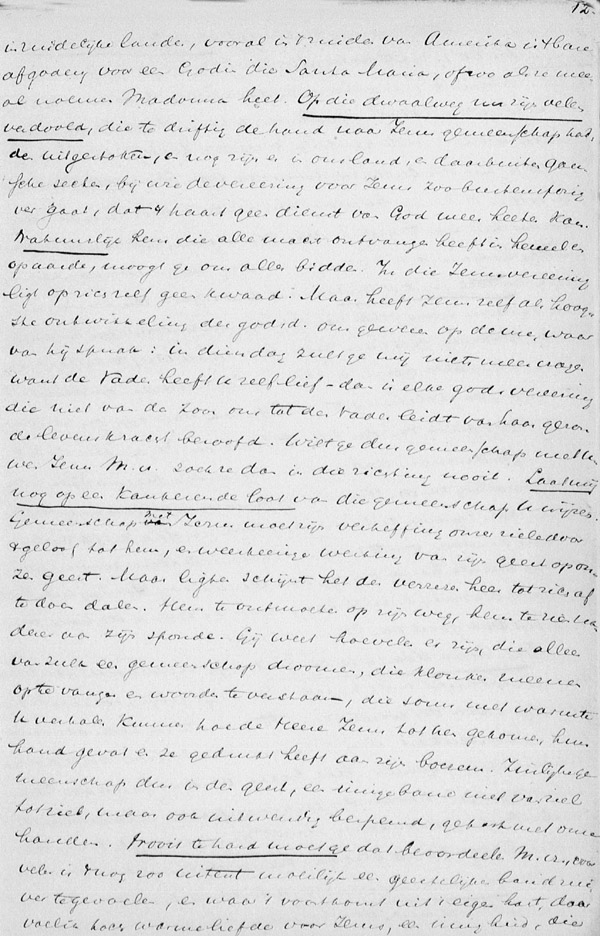 12.
in zuidelijke landen, vooral in 't zuiden van Amerika is 't bare
afgoderij voor een Godin die Santa Maria, of zoo als ze mee
al noemen Madonna heet. Op die dwaalweg nu zijn velen
verdoold, die te driftig de hand naar Jezus gemeenschap had,
den uitgestoken, en nog zijn er in ons land, en daarbuiten gan
sche secten, bij wie de vereering voor Jezus zoo buitensporig
ver gaat, dat 't haast geen dienst van God meer heeten kan.
Natuurlijk hem die alle macht ontvangen heeft in hemel en
op aarde, moogt ge om alles bidden. In die Jezusvereering
ligt op zich zelf geen kwaad. Maar heeft Jezus zelf als hoog-
ste ontwikkeling der godsd. ons gewezen op de ure, waar
van hij sprak: in dien dag zult ge mij niets meer vragen
want de Vader heeft u zelf lief – dan is elke godsvereering
die niet van de Zoon ons tot den Vader leidt van haar gezon
de levenskracht beroofd. Wilt ge dus gemeenschap met u
wen Jezus M. v. zoek ze dan in die richting nooit. Laat mij
nog op een kankerende loot van die gemeenschap u wijzen.
Gemeenschap met Jezus moet zijn verheffing onzer ziele door
't geloof tot hem, en weerkeerige werking van zijn geest op on-
ze geest. Maar lichter schijnt het der verzen heer tot zich af
te doen dalen. Hem te ontmoeten op zijn weg, hem te zien
deren aan zijn sponde. Gij weet hoevelen er zijn, die alleen
van zulk een gemeenschap droomen, die klanken meenen
op te vangen en woorden te verstaan, die soms met warmte
u verhalen kunnen hoe de Heere Jezus tot hen gekomen, hun
hand gevat en ze gedrukt heeft aan zijn boezem. Zinlijke ge
meenschap dus in den geest, een innige band niet van ziel
tot ziel, maar ook uitwendig bespeurd, gekust met onze
handen. Nooit te hard moet ge dat beoordeelen M. v., voor
velen is 't nog zoo uiterst moeilijk een geestelijke band zui
ver te gevoelen, en waar 't voortkomt uit 't eigen hart, daar
voelen hoe warme liefde voor Jezus, een innig lied, die